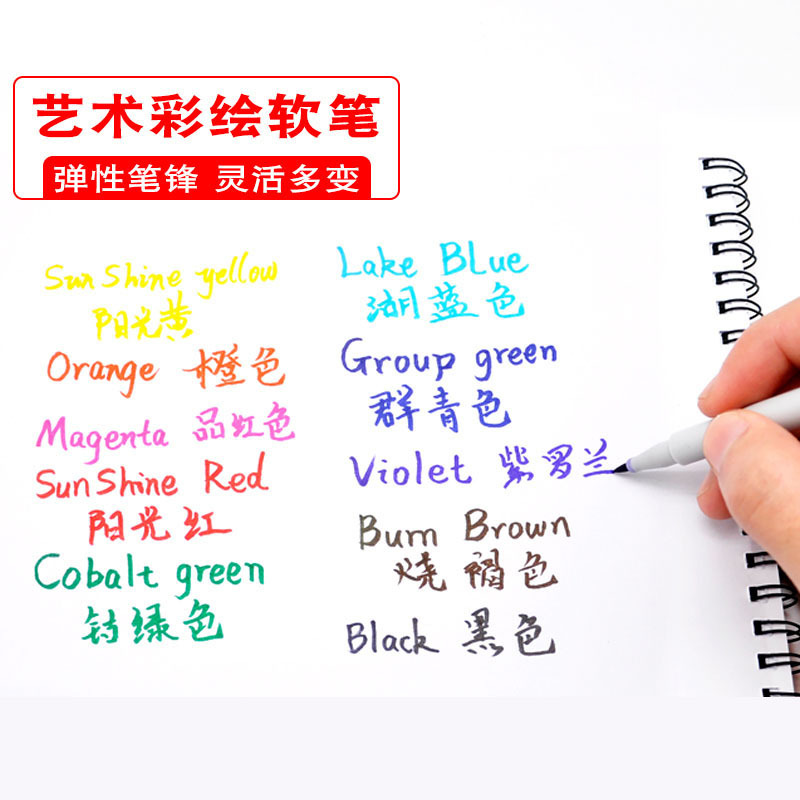 艺术彩绘软笔
弹性笔锋 灵活多变
Sun Shine yellow
阳光黄
Orange 橙色
Magenta 品红色
Sun Shine Red
阳光红
Cobalt green
钴绿色
Lake Blue
湖蓝色
Group green
群青色
Violet 紫罗兰
Burn Brown
烧褐色
Black 黑色